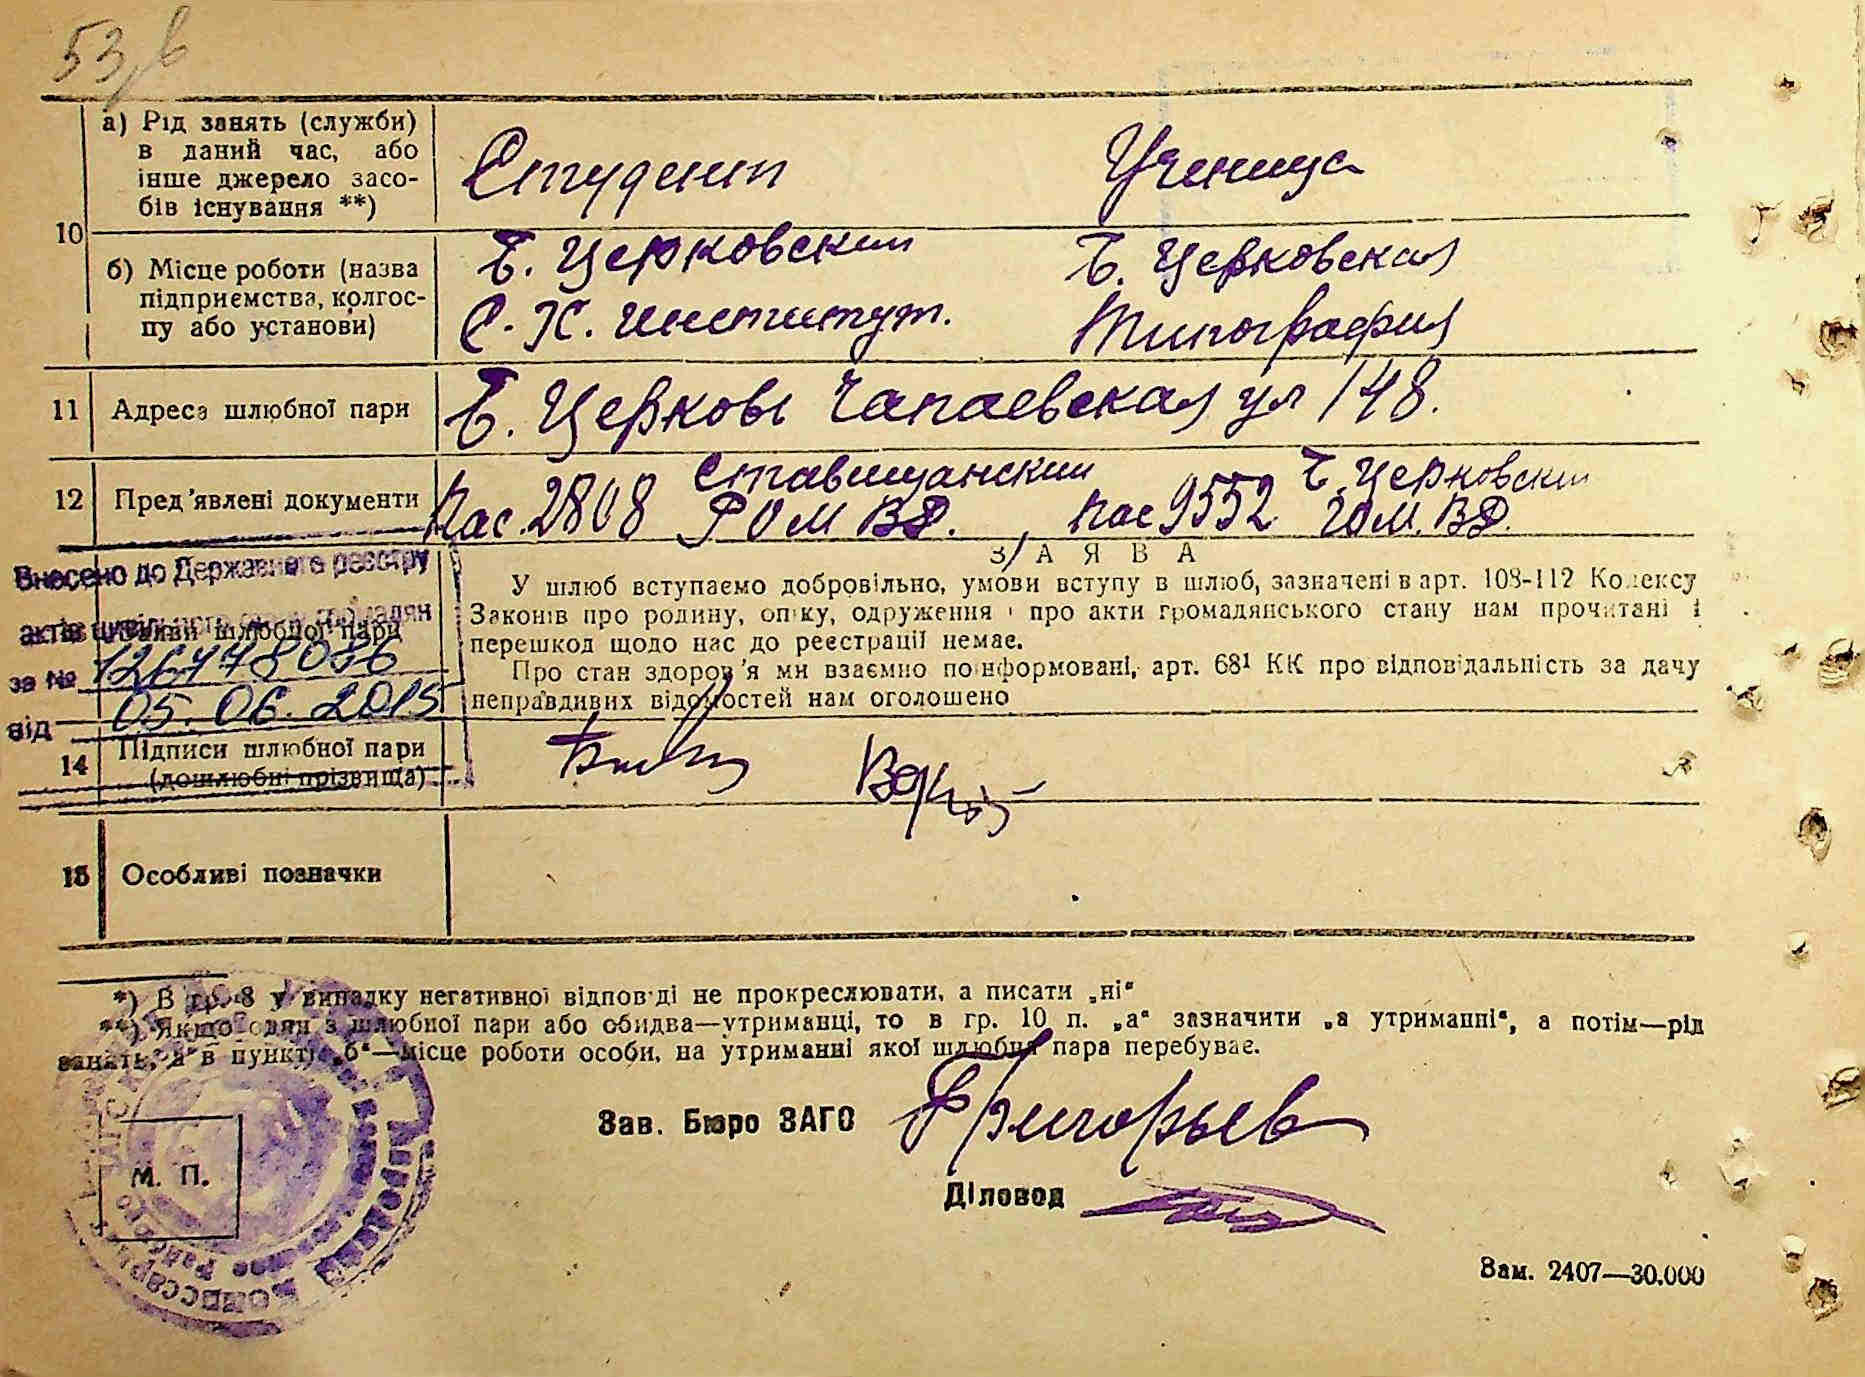 53, в
10
а) Рід занять (служби)
в даний час, або
інше джерело засо-
бів існування **)
Студент
Ученица
б) Місце роботи (назва
підприємства, колгос-
пу або установи)
Б. Церковский
С. Х. институт.
Б. Церковская
Типография
11
Адреса шлюбної пари
Б. Церковь Чапаевская ул 148.
12
Пред'явлені документи
Пас. 2808 Ставищанский
РОМ ВД.
Пас 9552 Б. Церковский
ГОМ. ВД.
Внесено до Державного реєстру
актів цивільного стану громадян
за № 126778086
від 05. 06. 2015
Заяви шлюбної пари
ЗАЯВА
У шлюб вступаємо добровільно, умови вступу в шлюб, зазначені в арт. 108-112 Кодексу
Законів про родину, опіку, одруження і про акти громадянського стану нам прочитані і
перешкод щодо нас до реєстрації немає.
Про стан здоров'я ми взаємно поінформовані, арт. 68¹ КК про відповідальність за дачу
неправдивих відомостей нам оголошено
14
Підписи шлюбної пари
(дошлюбні прізвища)
15
Особливі позначки
*) В гр. 8 у випадку негативної відповіді не прокреслювати, а писати „ні“
**) Якщо один з шлюбної пари або обидва—утриманці, то в гр. 10 п. „а“ зазначити „а утриманні“, а потім—рід
занять, а в пункті „б“—місце роботи особи, на утриманні якої шлюбна пара перебуває.
Зав. Бюро ЗАГС Григорьев
Діловод
М. П.
Народный Комиссариат
Зам. 2407—30.000